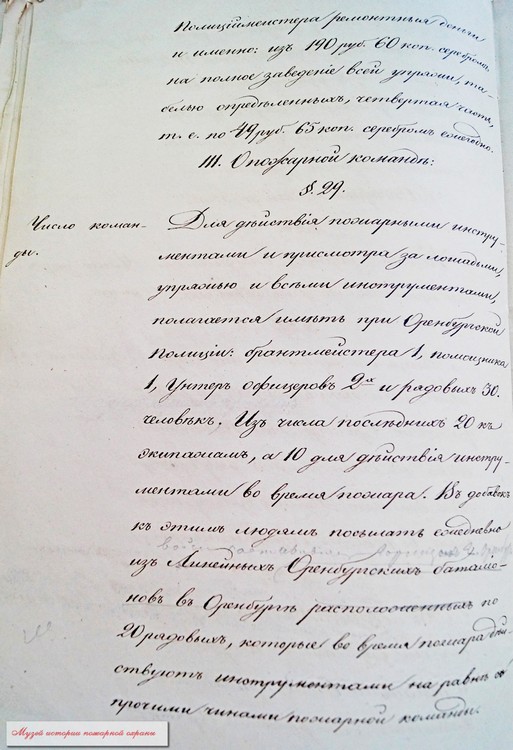 Полицiймейстера ремонтныя деньги
и именно: изъ 190 руб. 60 коп. серебромъ,
на полное заведенiе всей упряжи, та-
белью опредѣленныхъ, четвертая часть,
т. е. по 49 руб. 65 коп. серебромъ ежегодно.
III. О пожарной командѣ:
§. 29.
Число коман-
ды.
Для дѣйствiя пожарными инстру-
ментами и присмотра за лошадьми,
упряжью и всѣми инструментами,
полагается имѣть при Оренбургской
Полицiи: брантмейстера 1, помощника
1, Унтеръ офицеровъ 2х и рядовыхъ 30.
человѣкъ. Изъ числа послѣднихъ 20 къ
экипажамъ, а 10 для дѣйствiя инстру-
ментами во время пожара. Въ добавокъ
къ этимъ людямъ посылать ежедневно
изъ Линейныхъ Оренбургскихъ баталiо-
новъ въ Оренбургѣ расположенныхъ по
20 рядовыхъ, которые во время пожара дѣй-
ствуютъ инструментами на равнѣ съ
прочими чинами пожарной команды.
Музей истории пожарной охраны